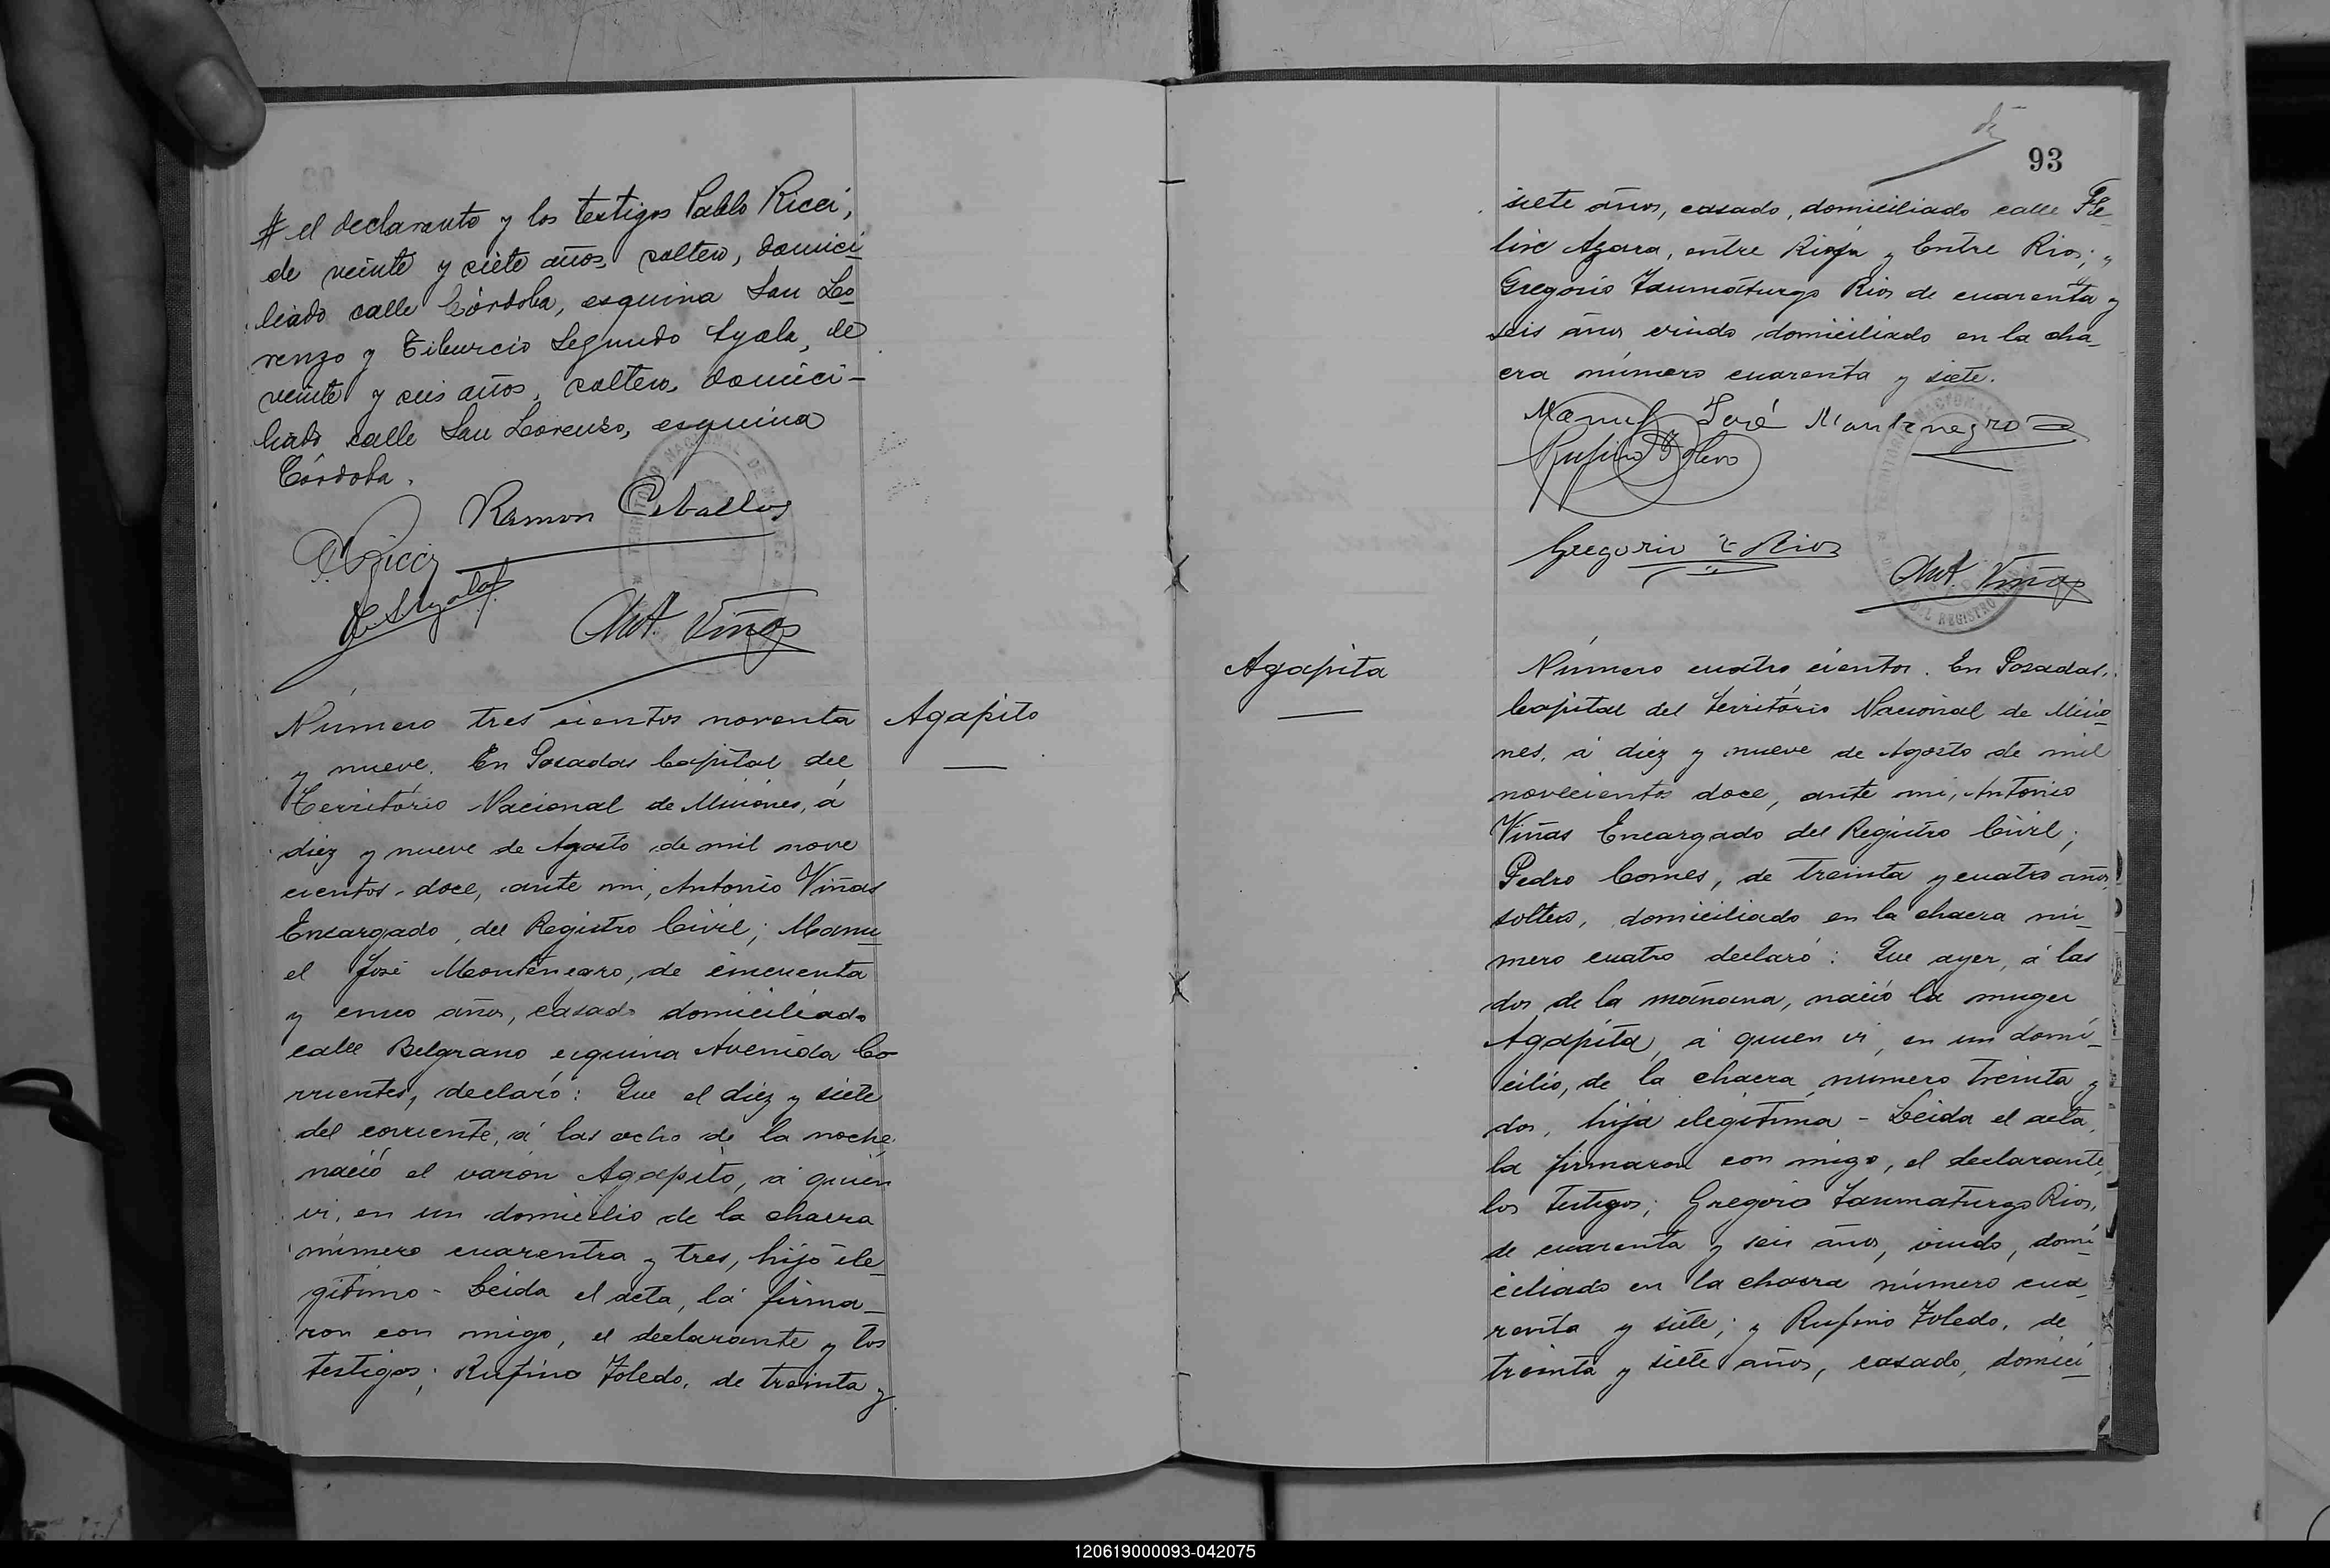 # el declarante y los testigos Pablo Ricci,
de veinte y siete años, soltero, domici
liado calle Córdoba, esquina San Lo
renzo y Tiburcio Segundo Ayala, de
veinte y seis años, soltero, domici-
liado calle San Lorenzo, esquina
Córdoba.
Ramon Ceballos
P. Ricci
Ant. Viñas
Número tres cientos noventa
y nueve. En Posadas Capital del
Território Nacional de Misiones, á
diez y nueve de Agosto de mil nove
cientos doce, ante mi, Antonio Viñas
Encargado del Registro Civil; Manu
el José Montenegro, de cincuenta
y cinco años, casado domiciliado
calle Belgrano esquina Avenida Co-
rrientes, declaró: Que el diez y siete
del corriente, á las ocho de la noche,
nació el varón Agapito, á quien
vi, en un domicilio de la chacra
número cuarentra y tres, hijo ile_
gitimo - Leida el acta, la firma_
ron con migo, el declarante y los
testigos; Rufino Toledo, de treinta y
Agapito
93
siete años, casado, domiciliado calle Fe
lix Azara, entre Rioja y Entre Rios; y
Gregorio Taumaturgo Rios de cuarenta y
seis años viudo domiciliado en la cha_
cra número cuarenta y siete.
Manuel José Montenegro
Rufino Toledo
Gregorio T Rios
Ant. Viñas
Agapita
Número cuatro cientos. En Posadas,
Capital del Território Nacional de Misio
nes, á diez y nueve de Agosto de mil
novecientos doce, ante mi, Antonio
Viñas Encargado del Registro Civil;
Pedro Comes, de treinta y cuatro años,
soltero, domiciliado en la chacra nú_
mero cuatro declaró: Que ayer, á las
dos de la mañana, nació la muger
Agapita, á quien vi, en un domi_
cilio, de la chacra número treinta y
dos, hija ilegitima - Leida el acta,
la firmaron con migo, el declarante,
los testigos; Gregorio Taumaturgo Rios,
de cuarenta y seis años, viudo, domi
ciliado en la chacra número cua_
renta y siete; y Rufino Toledo, de
treinta y siete años, casado, domici_
120619000093-042075